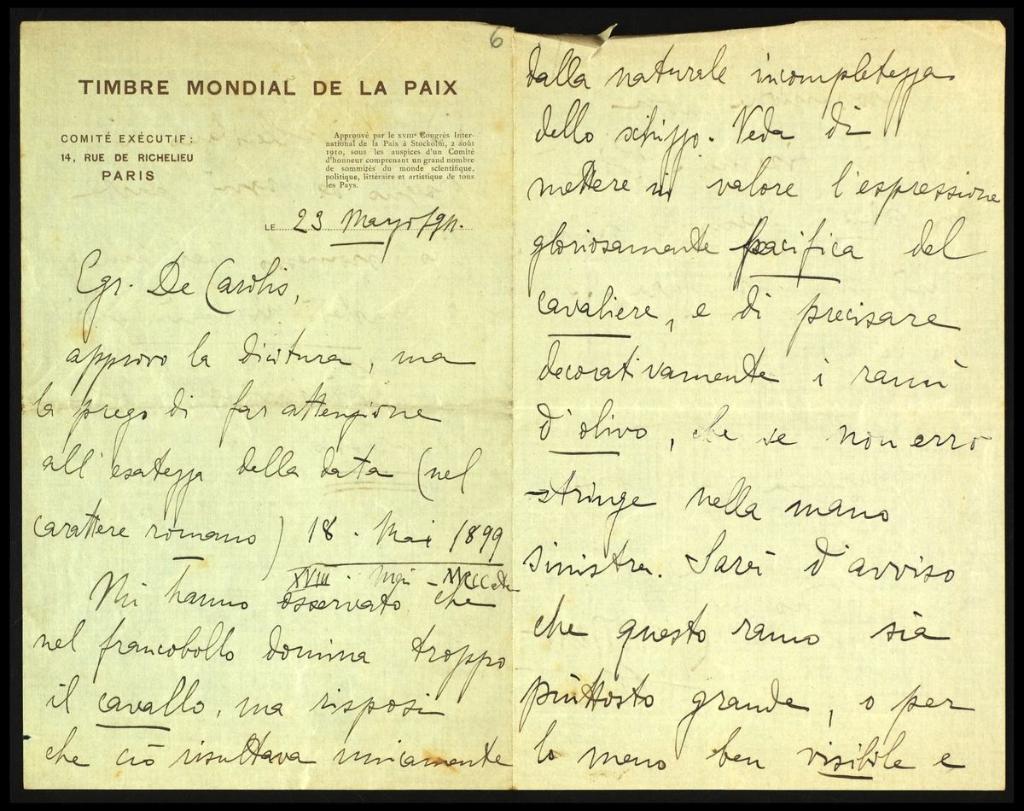 6
TIMBRE MONDIAL DE LA PAIX
COMITÉ EXÉCUTIF:
14, RUE DE RICHELIEU
PARIS
Approuvé par le XVIIIe Congrès Inter-
national de la Paix à Stockolm, 2 août
1910, sous les auspices d'un Comité
d'honneur comprenant un grand nombre
de sommités du monde scientifique,
politique, littéraire et artistique de tous
les Pays.
LE 23 Maggio 1911.
Egr. De Carolis,
approvo la dicitura, ma
la prego di far attenzione
all'esatezza della data (nel
carattere romano) 18. Mai 1899
XVIII. Mai -
Mi hanno osservato che
nel francobollo domina troppo
il cavallo, ma risposi
che ciò risultava unicamente
dalla naturale incompletezza
dello schizzo. Veda di
mettere in valore l'espressione
gloriosamente pacifica del
cavaliere, e di precisare
decorativamente i rami
d'olivo, che se non erro
stringe nella mano
sinistra. Sarei d'avviso
che questo ramo sia
piuttosto grande, o per
lo meno ben visibile e